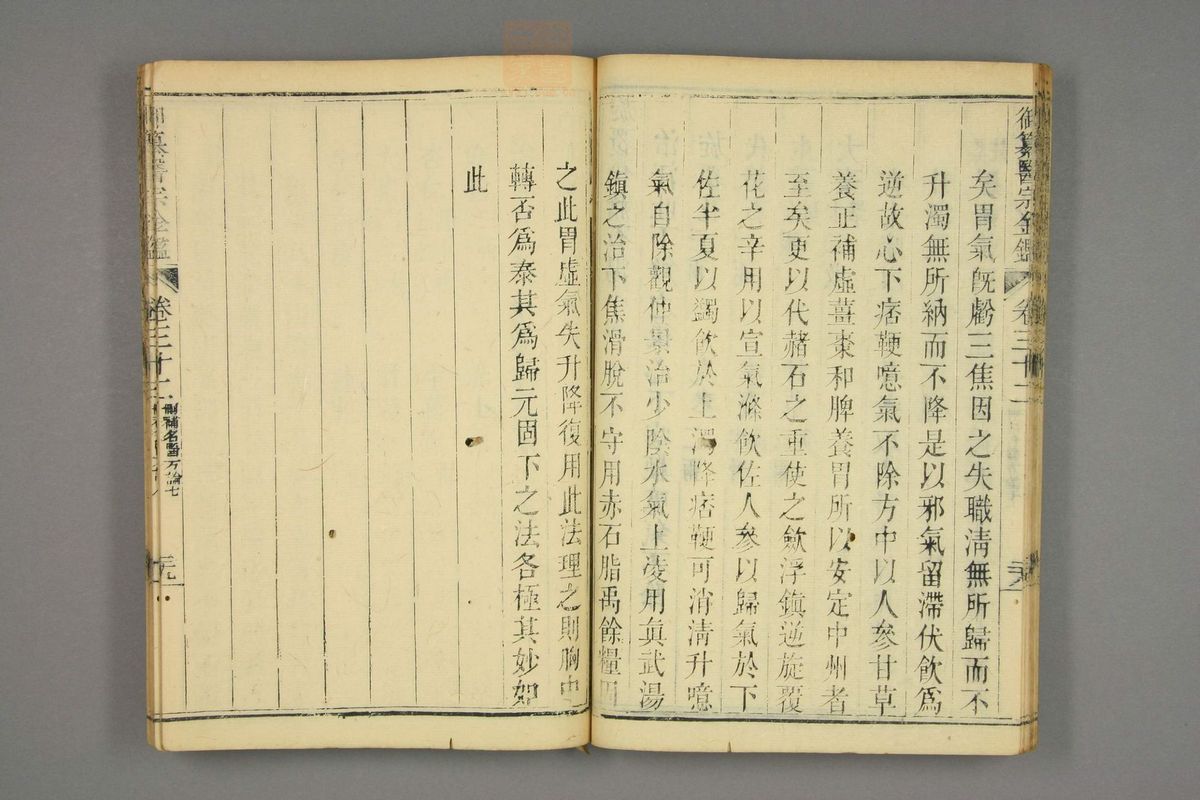 御纂醫宗金鑑
卷三十二
矣胃氣旣虧三焦因之失職淸無所歸而不
升濁無所納而不降是以邪氣留滯伏飮爲
逆故心下痞鞕噫氣不除方中以人參甘草
養正補虛薑棗和脾養胃所以安定中州者
至矣更以代赭石之重使之斂浮鎭逆旋覆
花之辛用以宣氣滌飮佐人參以歸氣於下
佐半夏以蠲飮於上濁降痞鞕可消淸升噫
氣自除觀仲景治少陰水氣上凌用眞武湯
鎭之治下焦滑脫不守用赤石脂禹餘糧
之此胃虛氣失升降復用此法理之則胸中
轉否爲泰其爲歸元固下之法各極其妙如
此
御纂醫宗金鑑
卷三十二
刪補名醫方論七
元